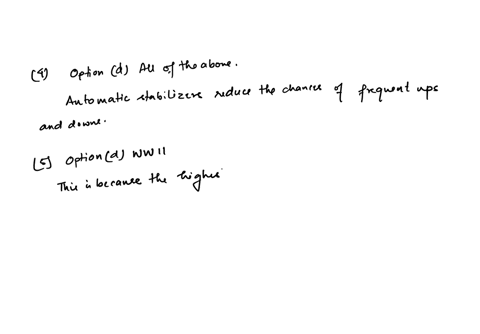 (4) Option (d) All of the above.
Automatic stabilizers reduce the chances of frequent ups
and downs.
(5) Option (d) WW II
This is because the higher